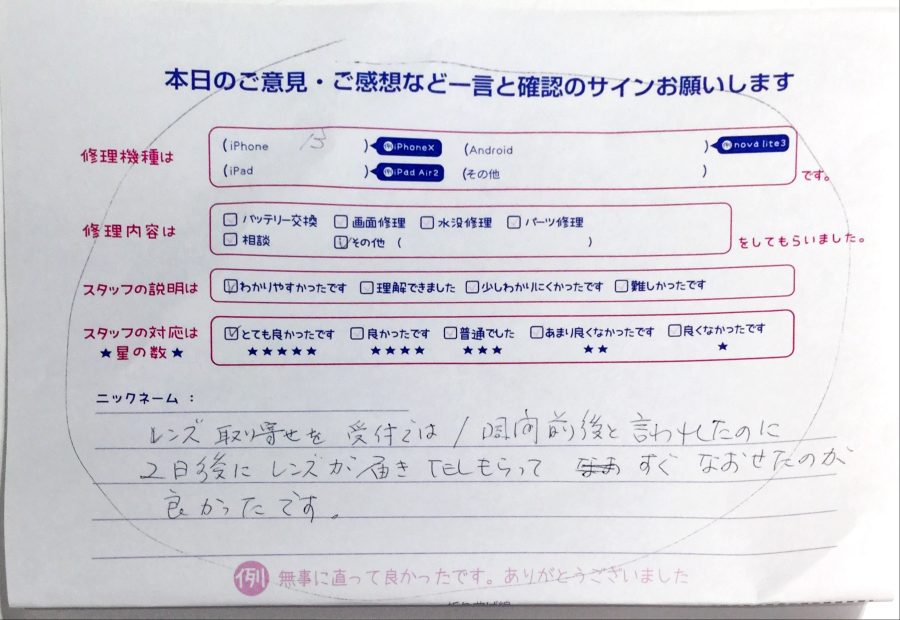 本日のご意見・ご感想など一言と確認のサインお願いします
修理機種は
(iPhone 13 ) iPhoneX (Android ) nova lite3
(iPad ) iPad Air2 (その他 ) です。
修理内容は
バッテリー交換 画面修理 水没修理 パーツ修理
相談 その他 ( ) をしてもらいました。
スタッフの説明は わかりやすかったです 理解できました 少しわかりにくかったです 難しかったです
スタッフの対応は とても良かったです 良かったです 普通でした あまり良くなかったです 良くなかったです
★星の数★ ★★★★★ ★★★★ ★★★ ★★ ★
ニックネーム：
レンズ取り寄せを受付では1週間前後と言われたのに
2日後にレンズが届きTELもらって すぐなおせたのが
良かったです。
例 無事に直って良かったです。ありがとうございました